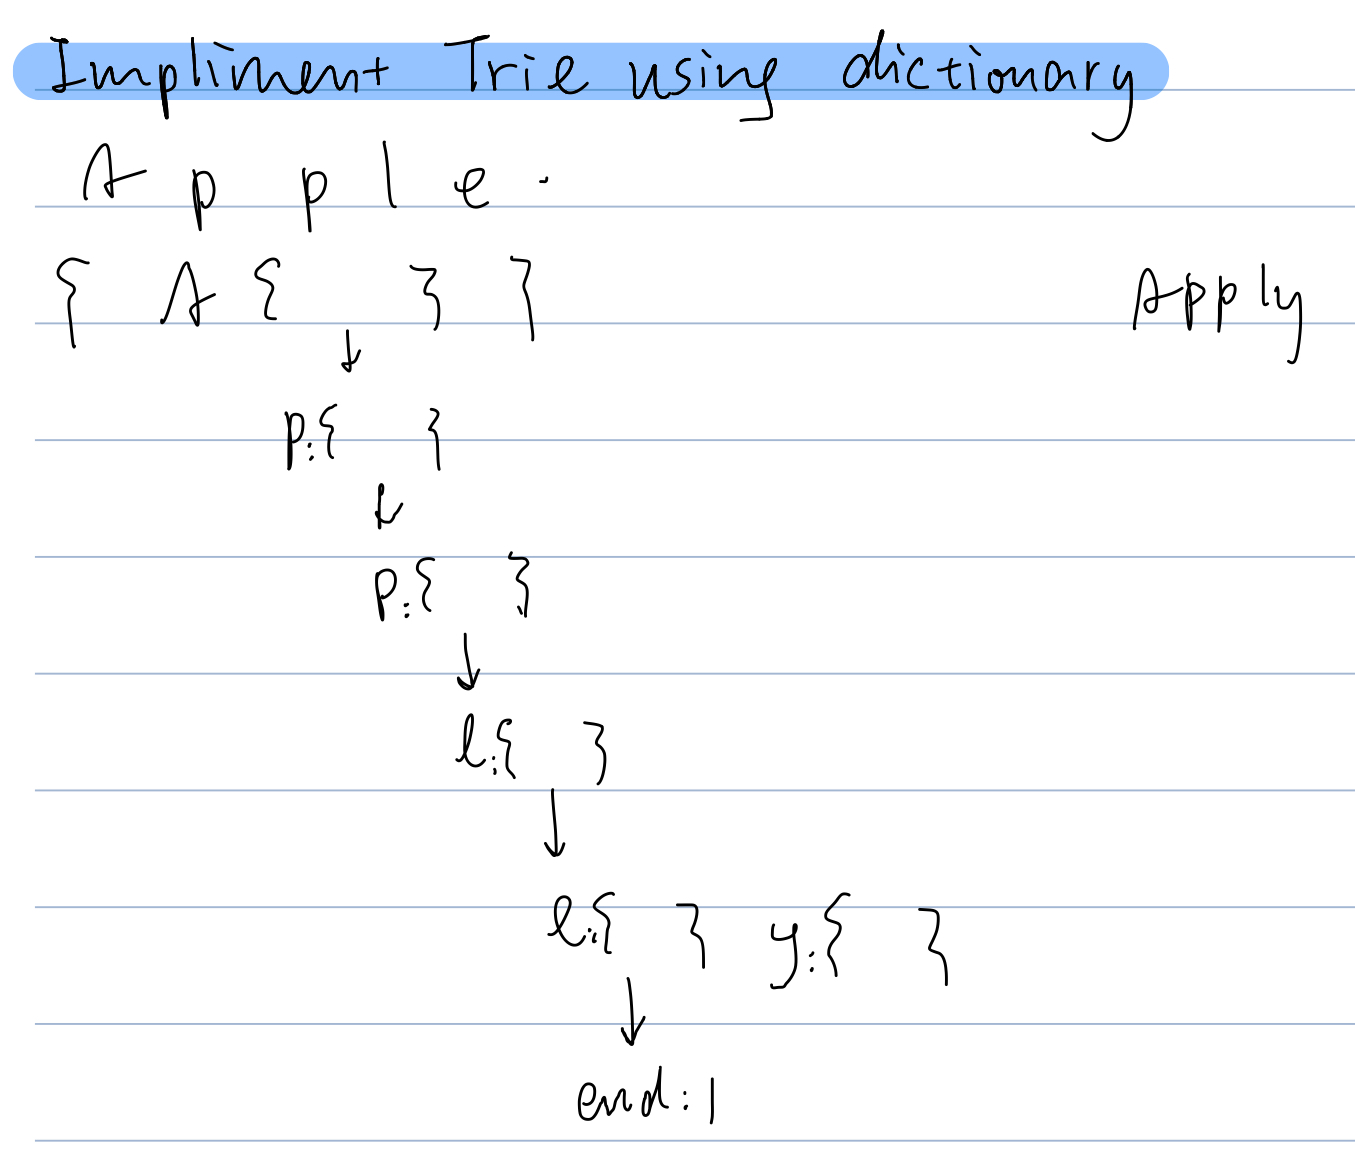 Impliment Trie using dictionary
A p p l e .
{ A { } }
Apply
↓
p:{ }
↓
p:{ }
↓
l:{ }
↓
e:{ } y:{ }
↓
end:1